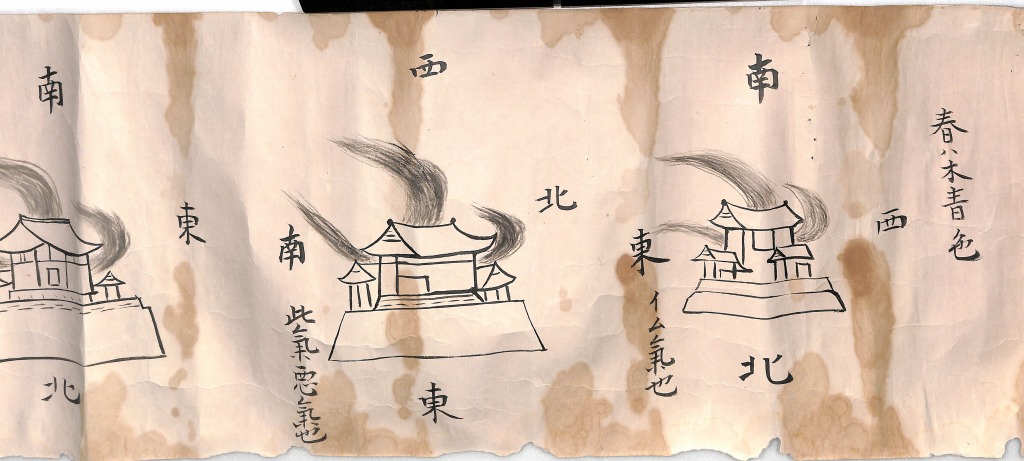 春ハ木青色
南
西
東
イム氣也
北
西
北
南
此氣悪氣也
東
南
東
北